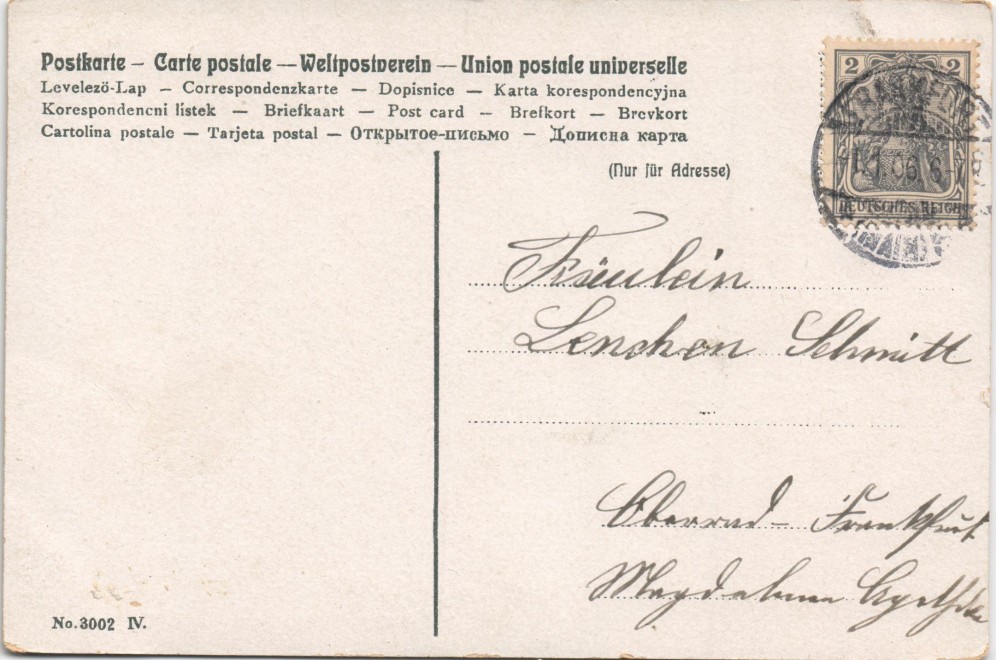 Postkarte – Carte postale — Weltpostverein — Union postale universelle
Levelező-Lap — Correspondenzkarte — Dopisnice — Karta korespondencyjna
Korespondencni listek — Briefkaart — Post card — Brefkort — Brevkort
Cartolina postale — Tarjeta postal — Открытое-письмо — Дописна карта
(Nur für Adresse)
2 2
1.1.06.6-
DEUTSCHES REICH
Fräulein
Lenchen Schmitt
Oberrad – Frankfurt
Magdalenen Apotheke
No. 3002 IV.